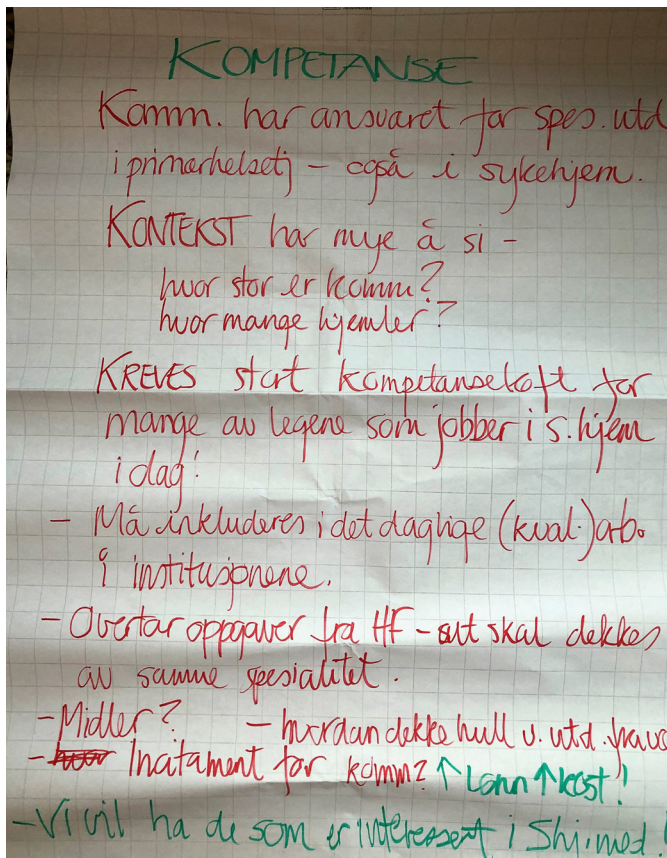 KOMPETANSE
Komm. har ansvaret for spes. utd
i primærhelsetj – også i sykehjem.
KONTEKST har mye å si –
hvor stor er komm?
hvor mange hjemler?
KREVES stort kompetanseløft for
mange av legene som jobber i s.hjem
i dag!
– Må inkluderes i det daglige (kval.) arb.
i institusjonene.
– Overtar oppgaver fra HF – alt skal dekkes
av samme spesialitet.
– Midler? – hvordan dekke hull v. utd. fravær
– Incitament for komm? ↑ Lønn ↑ kost!
– Vi vil ha de som er interessert i Shj.med!